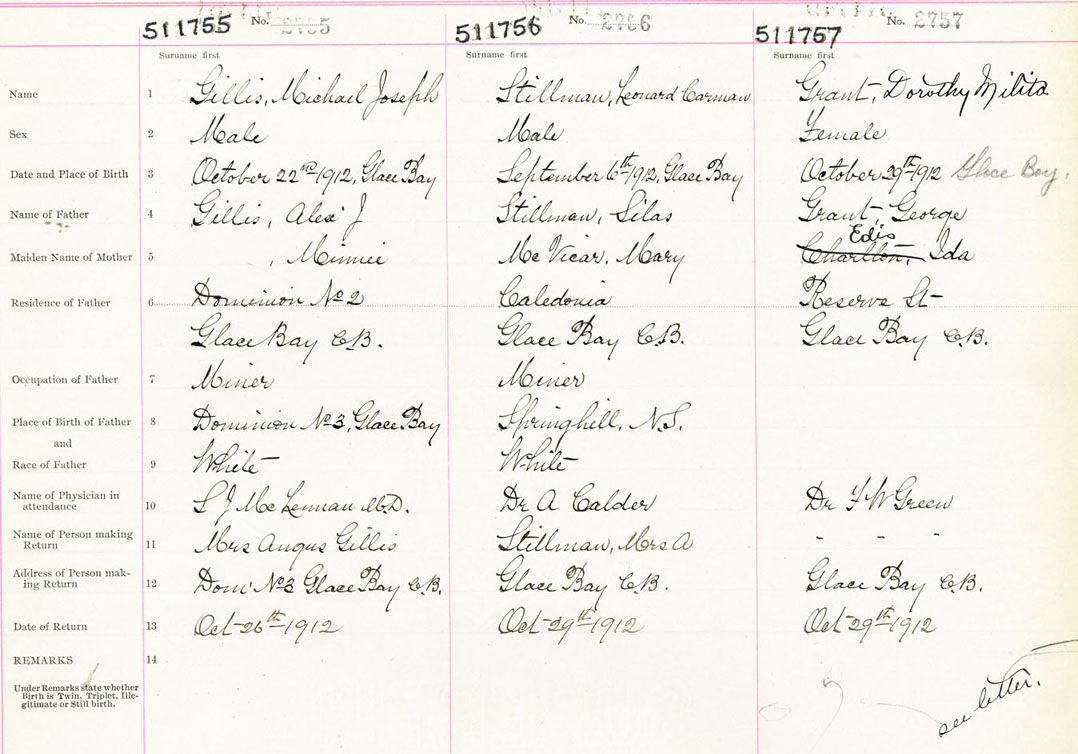 511755 No. 2755 511756 No. 2756 511757 No. 2757
Surname first Surname first Surname first
Name 1 Gillis, Michael Joseph Stillman, Leonard Carman Grant, Dorothy Milita
Sex 2 Male Male Female
Date and Place of Birth 3 October 22nd 1912, Glace Bay September 6th 1912, Glace Bay October 29th 1912 Glace Bay,
Name of Father 4 Gillis, Alex J Stillman, Silas Grant, George
Edis
Maiden Name of Mother 5 , Minnie Mc Vicar, Mary Charlton, Ida
Residence of Father 6 Dominion No 2 Caledonia Reserve St
Glace Bay C.B. Glace Bay C.B. Glace Bay C.B.
Occupation of Father 7 Miner Miner
Place of Birth of Father 8 Dominion No 3, Glace Bay Springhill, N.S.
and
Race of Father 9 White White
Name of Physician in
attendance 10 S J McLennan M.D. Dr A Calder Dr F W Green
Name of Person making
Return 11 Mrs Angus Gillis Stillman, Mrs A " " "
Address of Person mak-
ing Return 12 Dom' No 3 Glace Bay C.B. Glace Bay C.B. Glace Bay C.B.
Date of Return 13 Oct 26th 1912 Oct 29th 1912 Oct 29th 1912
REMARKS 14
Under Remarks state whether
Birth is Twin, Triplet, Ille-
gitimate or Still birth.
see letter.